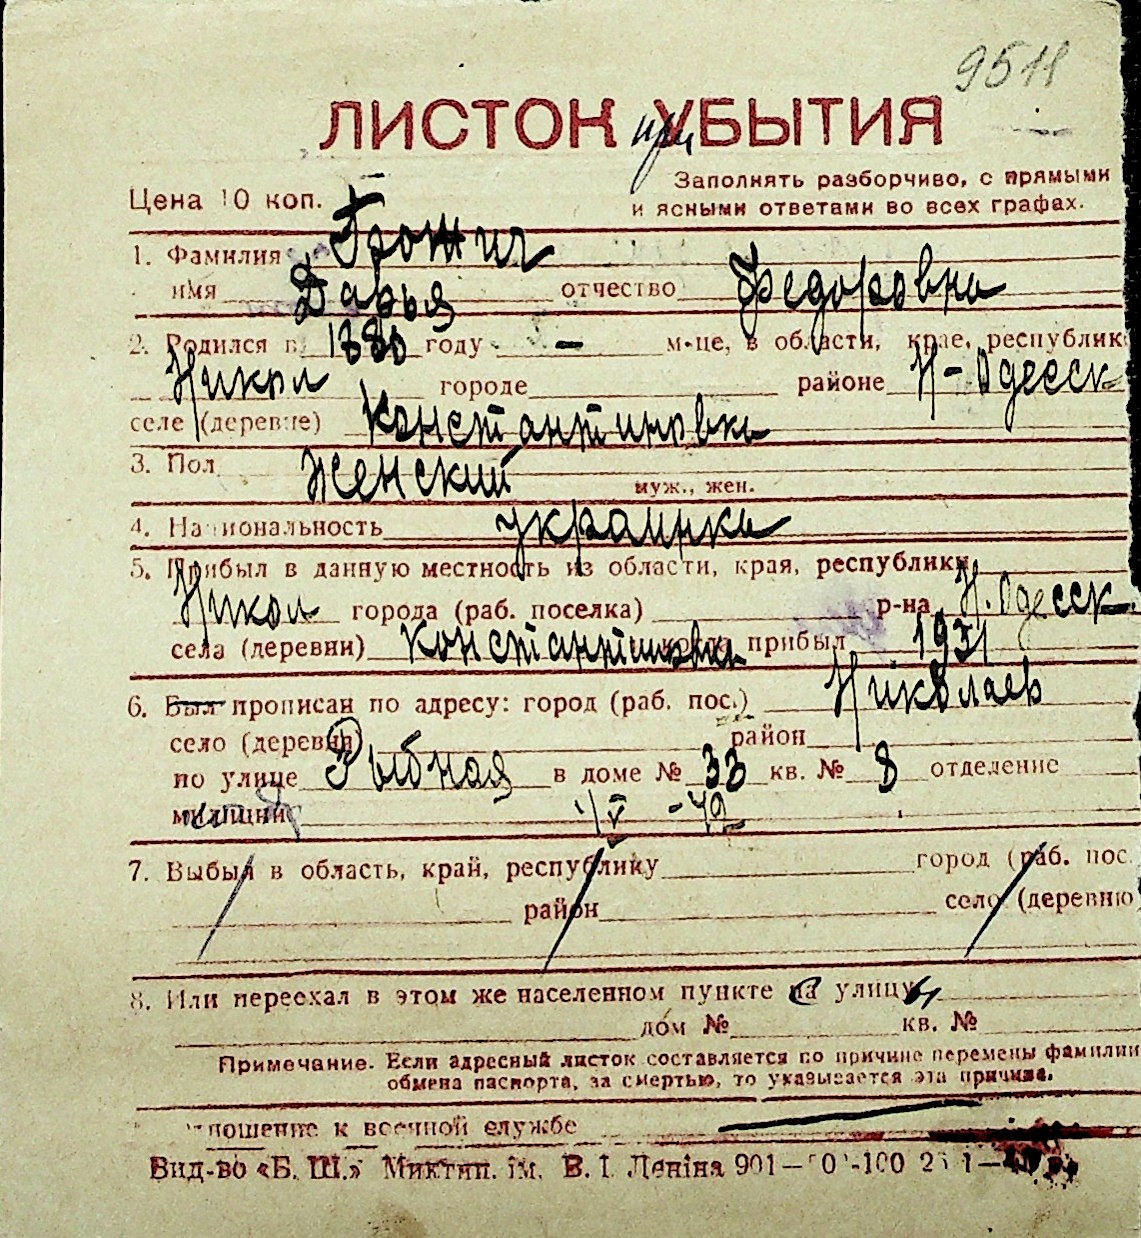 9511
ЛИСТОК при УБЫТИЯ
Заполнять разборчиво, с прямыми
Цена 10 коп.
и ясными ответами во всех графах.
1. Фамилия Грожич
имя Дарья отчество Федоровна
2. Родился в 1880 году - м-це, в области, крае, республик
Никол городе районе Н-Одесск
селе (деревне) Константиновка
3. Пол Женский муж., жен.
4. Национальность украинка
5. Прибыл в данную местность из области, края, республики
Никол города (раб. поселка) р-на Н.Одесск
села (деревни) Константиновка когда прибыл 1931
6. Был прописан по адресу: город (раб. пос.) Николаев
село (деревни) район
по улице Рыбная в доме № 33 кв. № 8 отделение
милиции
7. Выбыл в область, край, республику город (раб. пос.
район село (деревню
8. Или переехал в этом же населенном пункте на улицу
дом № кв. №
Примечание. Если адресный листок составляется по причине перемены фамилии
обмена паспорта, за смертью, то указывается эта причина.
ношение к военной службе
Вид-во «Б. Ш.» Миктип. ім. В. І. Леніна 901